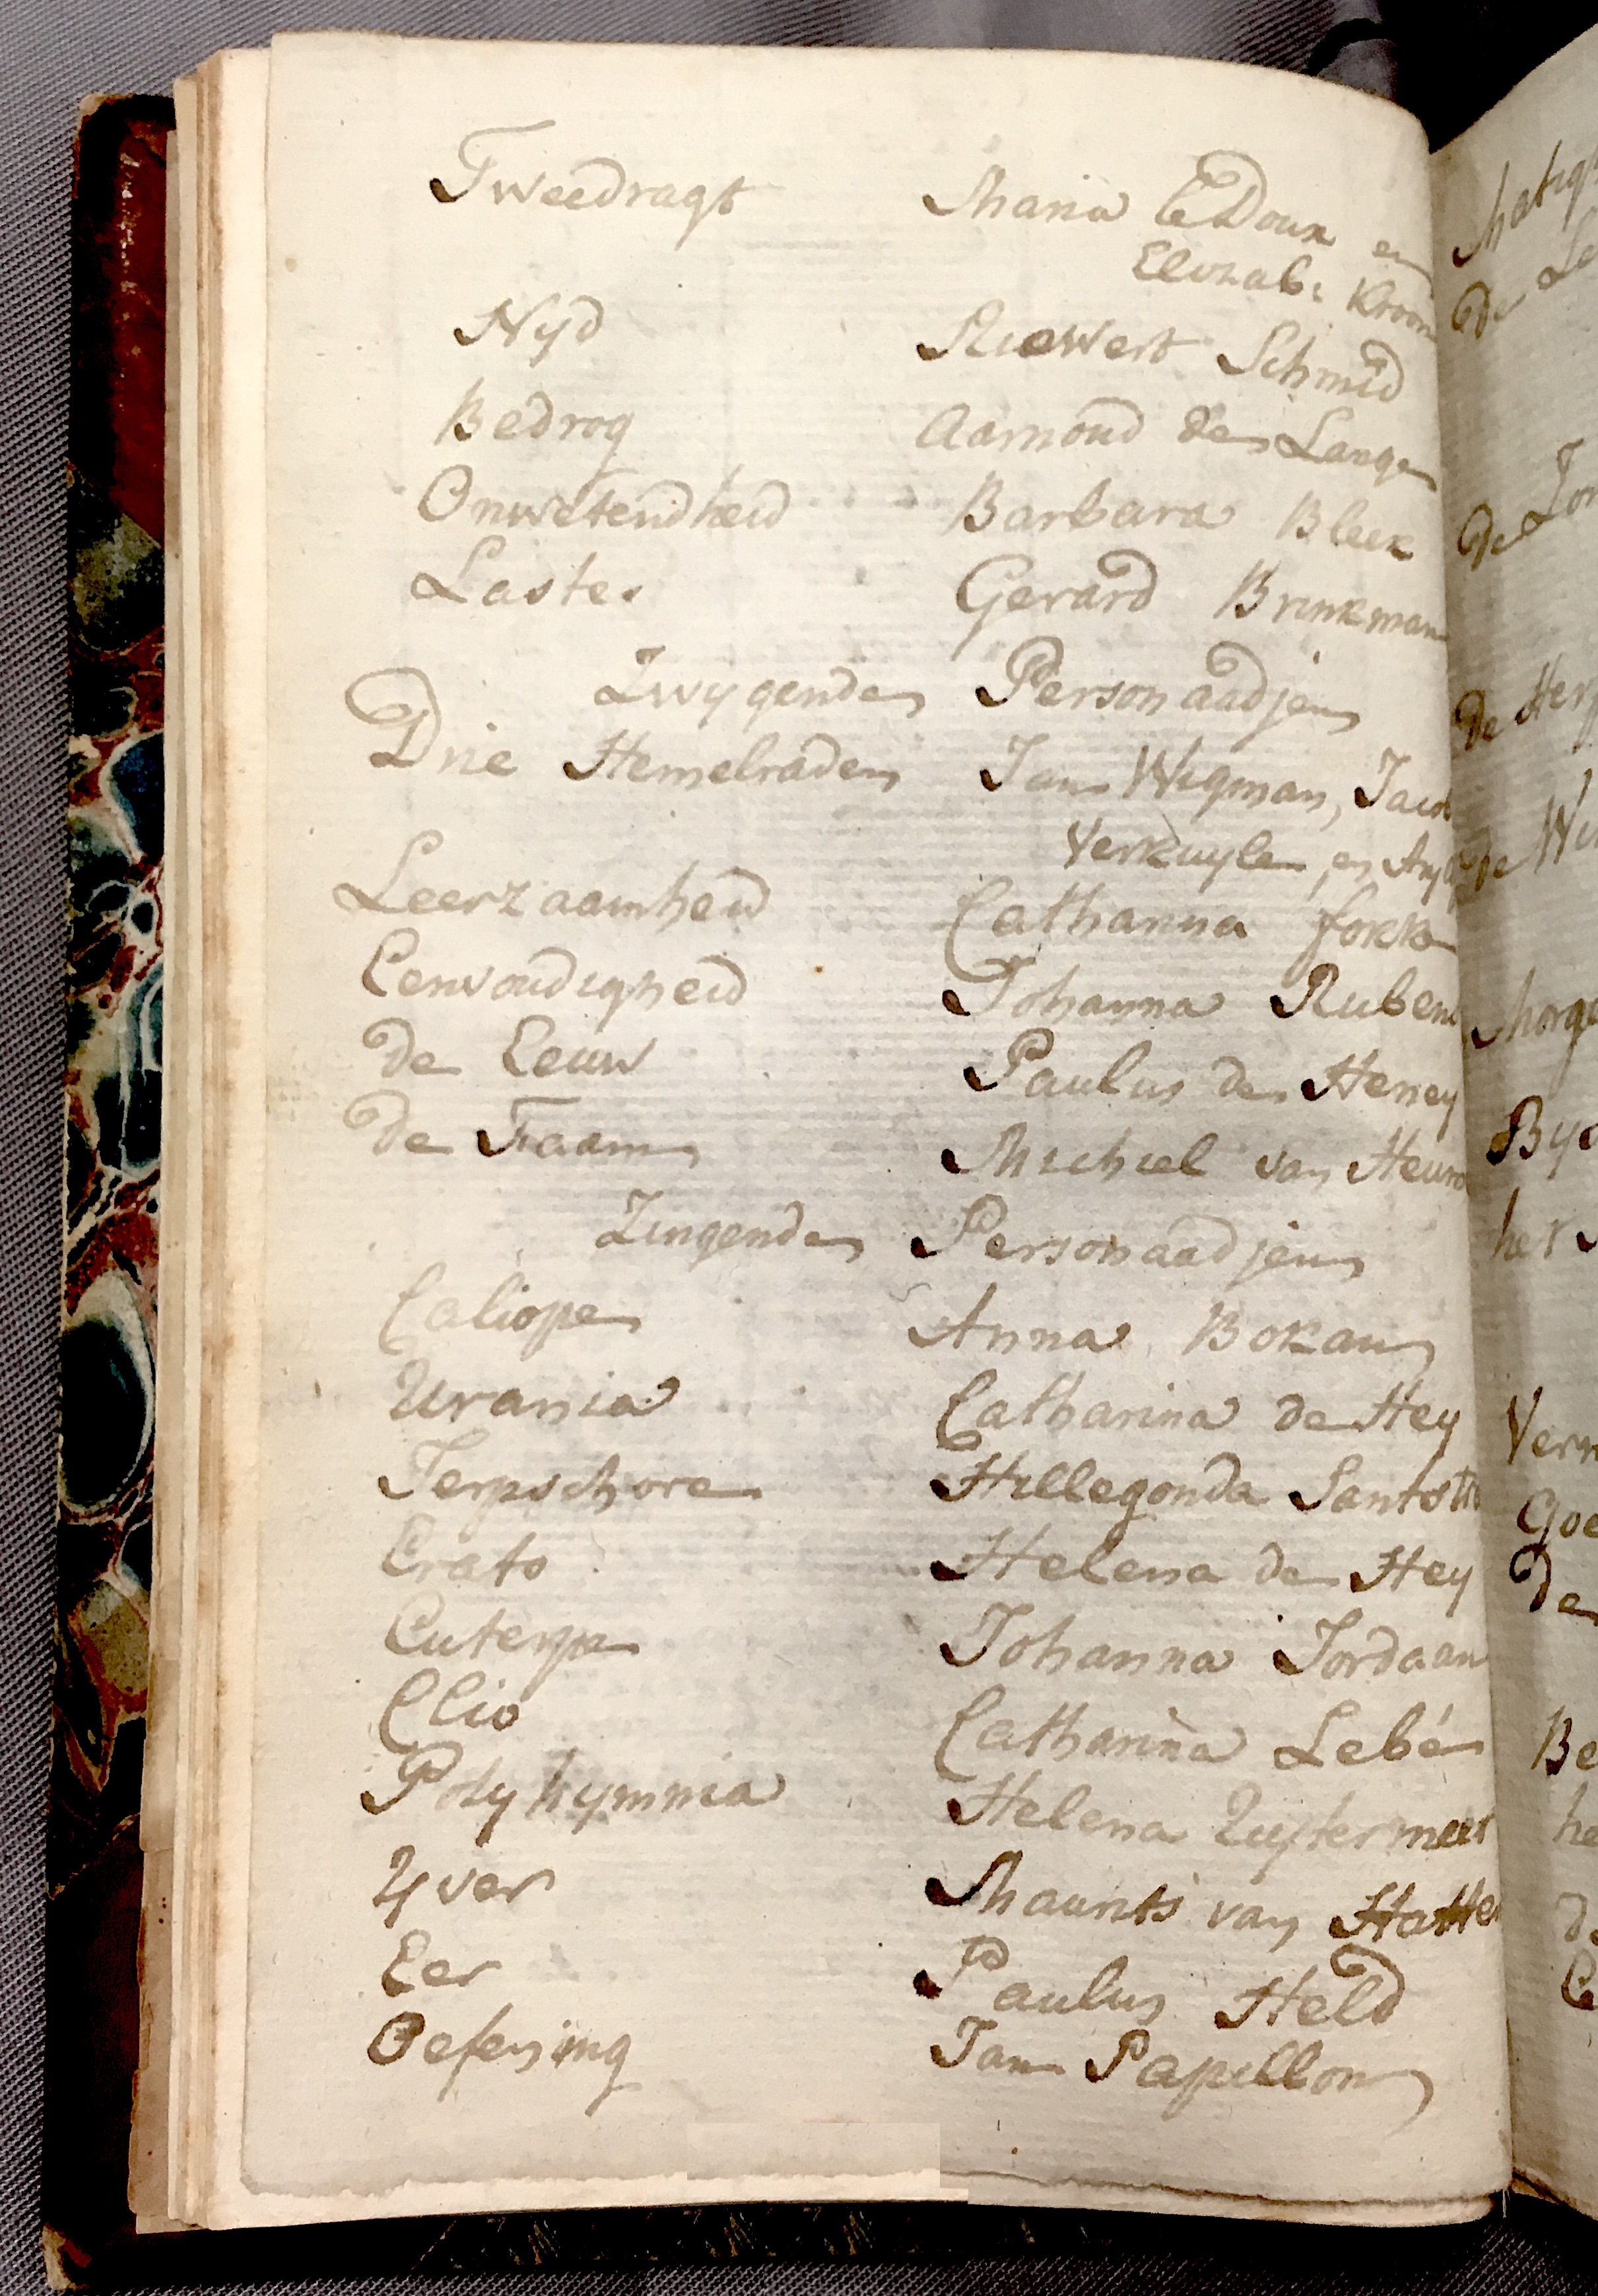 Tweedragt Maria le Doux en
Elizab: Kroon
Nyd Riewert Schmid
Bedrog Aarnoud de Lange
Onwetendheid Barbara Bleek
Laster Gerard Brinkman
Zwygende Personaadjen
Drie Hemelraden Jan Wigman, Jacob
Verkuyle en
Leerzaamheid Catharina Fokke
Eenvoudigheid Johanna Rubens
de Eeuw Paulus de
de Faam Michiel van
Zingende Personaadjen
Caliope Anna Bokan
Urania Catharina de Hey
Terpschore Hillegonda
Erato Helena de Hey
Euterpe Johanna Jordaan
Clio Catharina Lebé
Polyhymnia Helena
Yver Maurits van
Eer Paulus Held
Oefening Jan Papillon
de
de
de
de
By